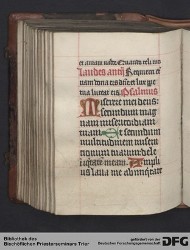 Laudes antī Requiem et
nam dona eis dn̄e et lux ppe
tua luceat eis Psalmus
Miserere mei deus:
secundum mag
nam misericordiam
tuam Et secundum
multitudinem misera
tionum tuarum dele i
iquitatē meam Ampli
us laua me ab iniquitate
Bibliothek des
Bischöflichen Priesterseminars Trier
gefördert von der
Deutschen Forschungsgemeinschaft
DFG